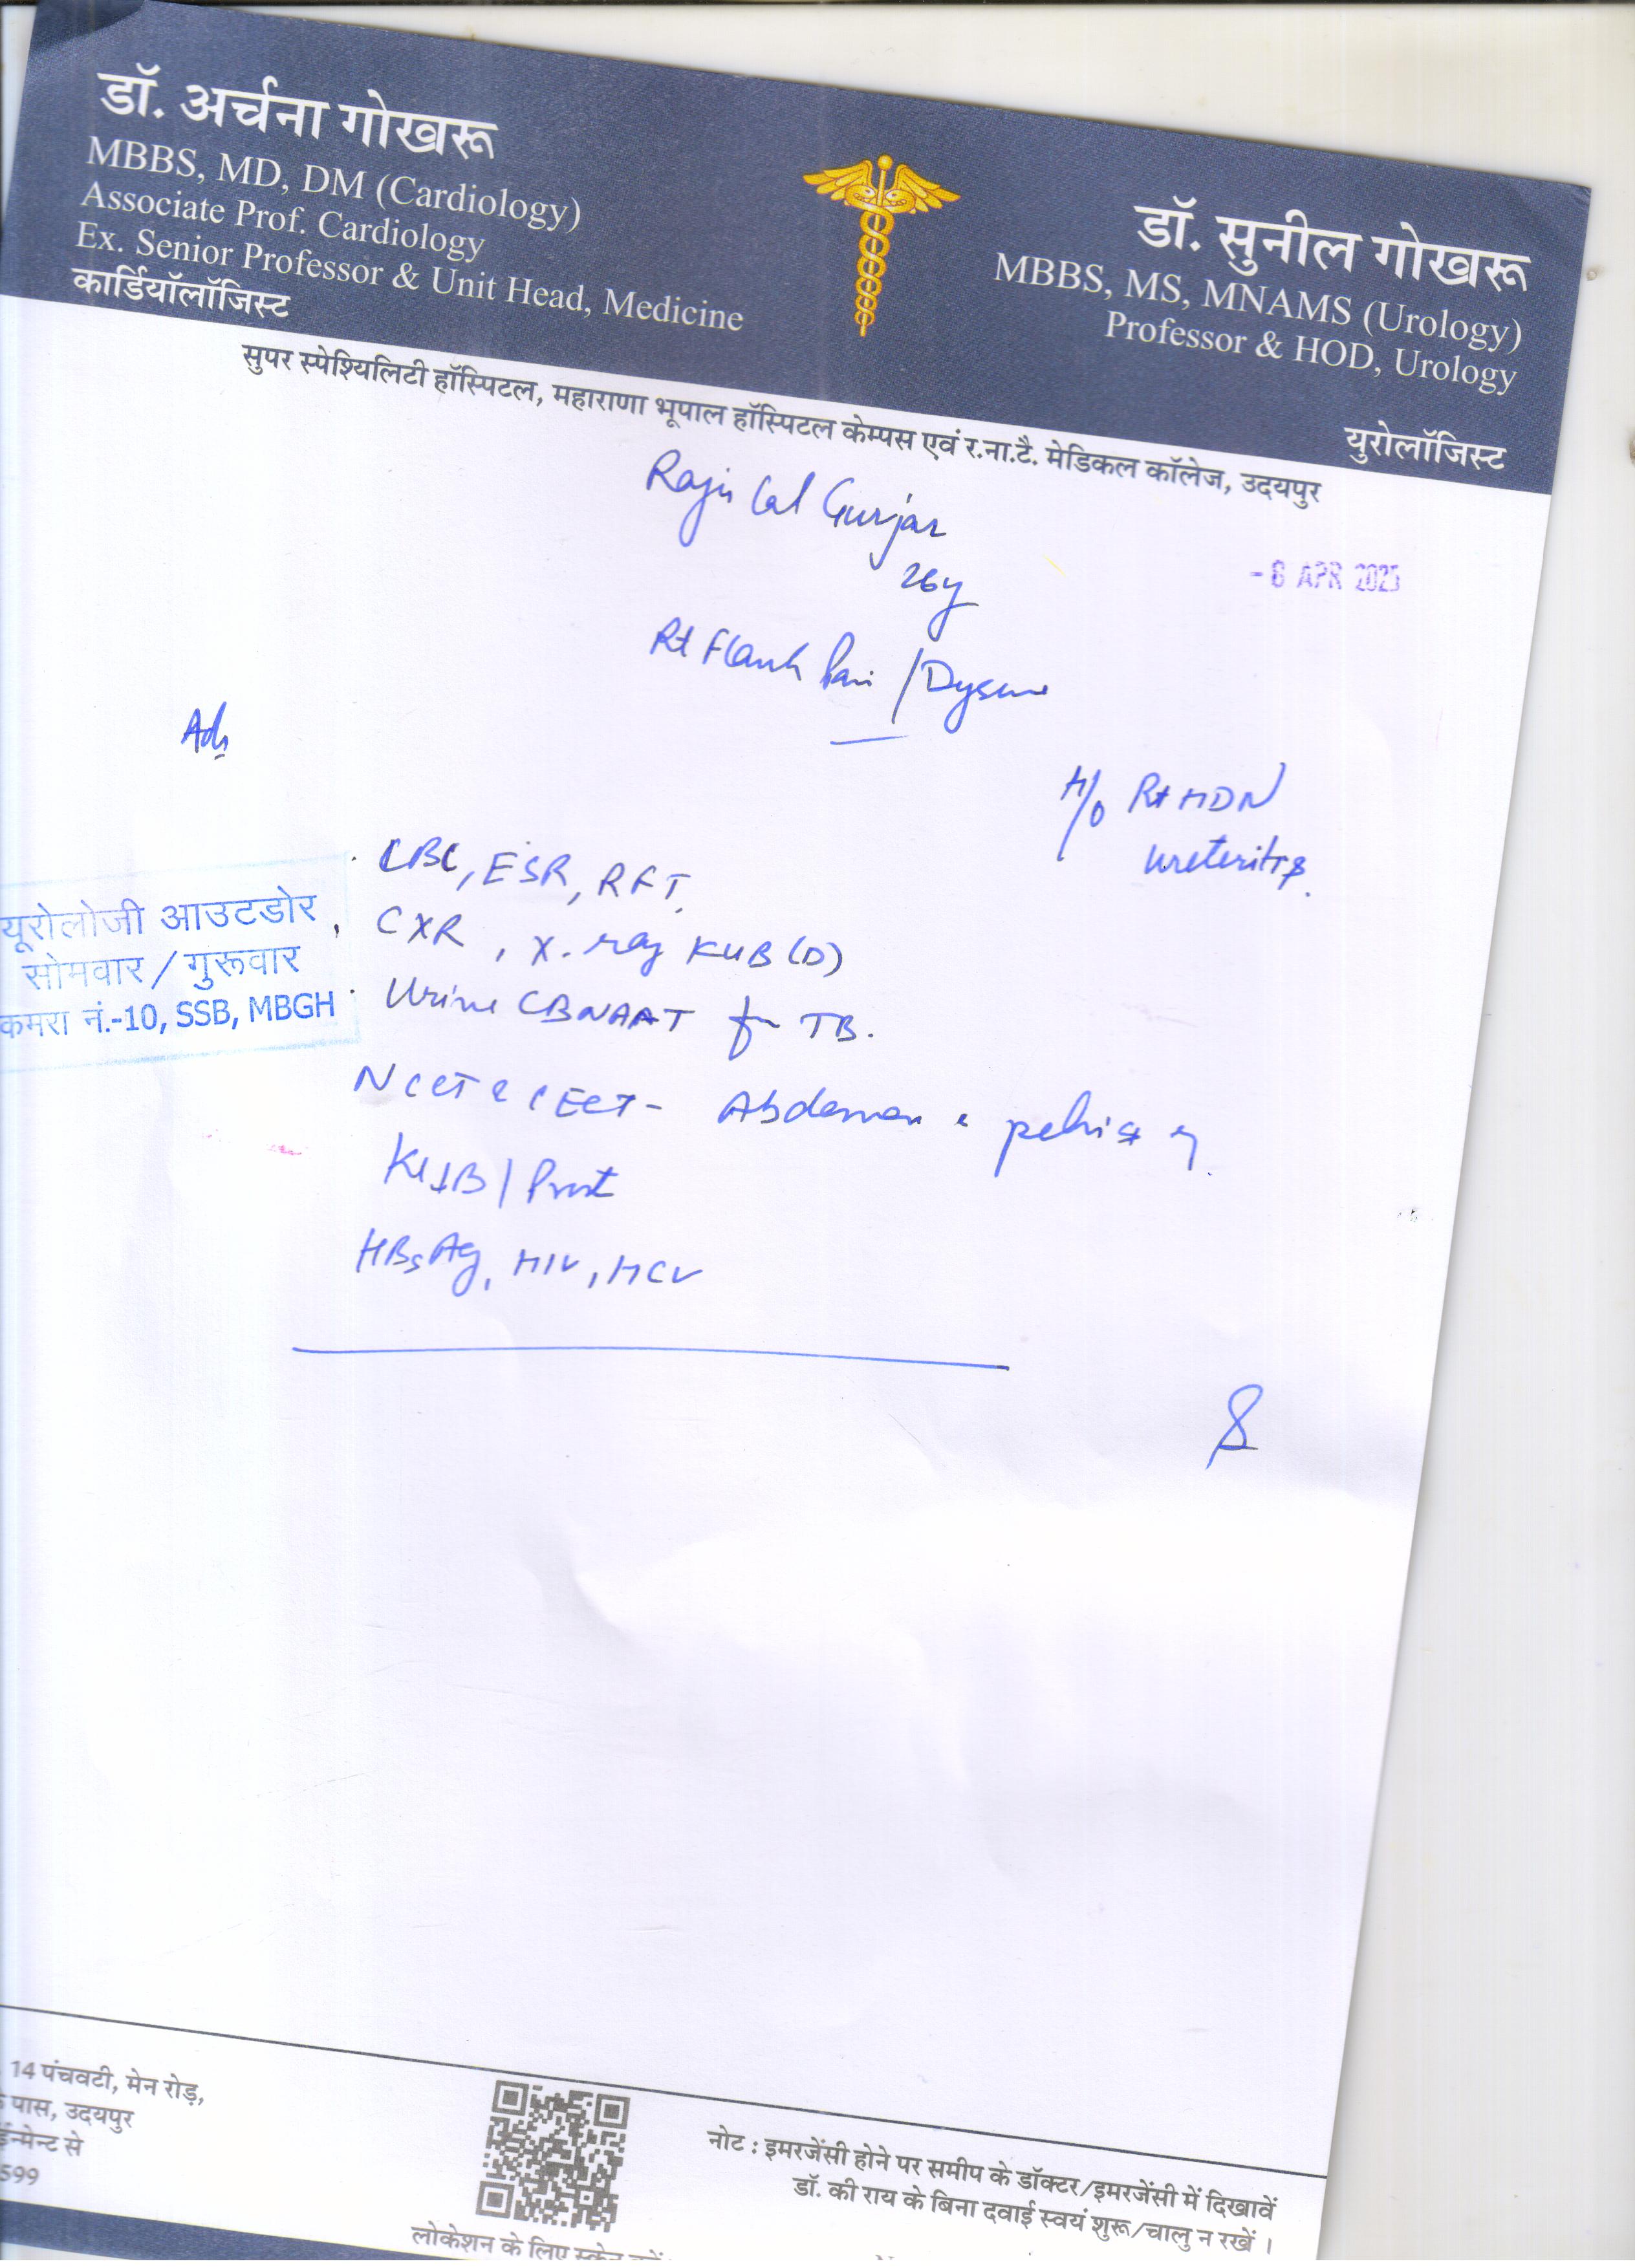 डॉ. अर्चना गोखरू
MBBS, MD, DM (Cardiology)
Associate Prof. Cardiology
Ex. Senior Professor & Unit Head, Medicine
कार्डियॉलॉजिस्ट
डॉ. सुनील गोखरू
MBBS, MS, MNAMS (Urology)
Professor & HOD, Urology
युरोलॉजिस्ट
सुपर स्पेश्यिलिटी हॉस्पिटल, महाराणा भूपाल हॉस्पिटल केम्पस एवं र.ना.टै. मेडिकल कॉलेज, उदयपुर
Gurjar
26y
- 6 APR 2025
Rt Flank Pain /
Adv
H/O Rt HDN
ureteritis
CBC, ESR, RFT,
CXR, X-ray KUB (D)
Urine CBNAAT for TB.
NCCT & CECT - Abdomen & pelvis
KUB / Prost
HBsAg, HIV, HCV
यूरोलोजी आउटडोर
सोमवार / गुरूवार
कमरा नं.-10, SSB, MBGH
14 पंचवटी, मेन रोड़,
पास, उदयपुर
से
599
नोट : इमरजेंसी होने पर समीप के डॉक्टर/इमरजेंसी में दिखावें
डॉ. की राय के बिना दवाई स्वयं शुरू/चालु न रखें ।
लोकेशन के लिए स्केन करें